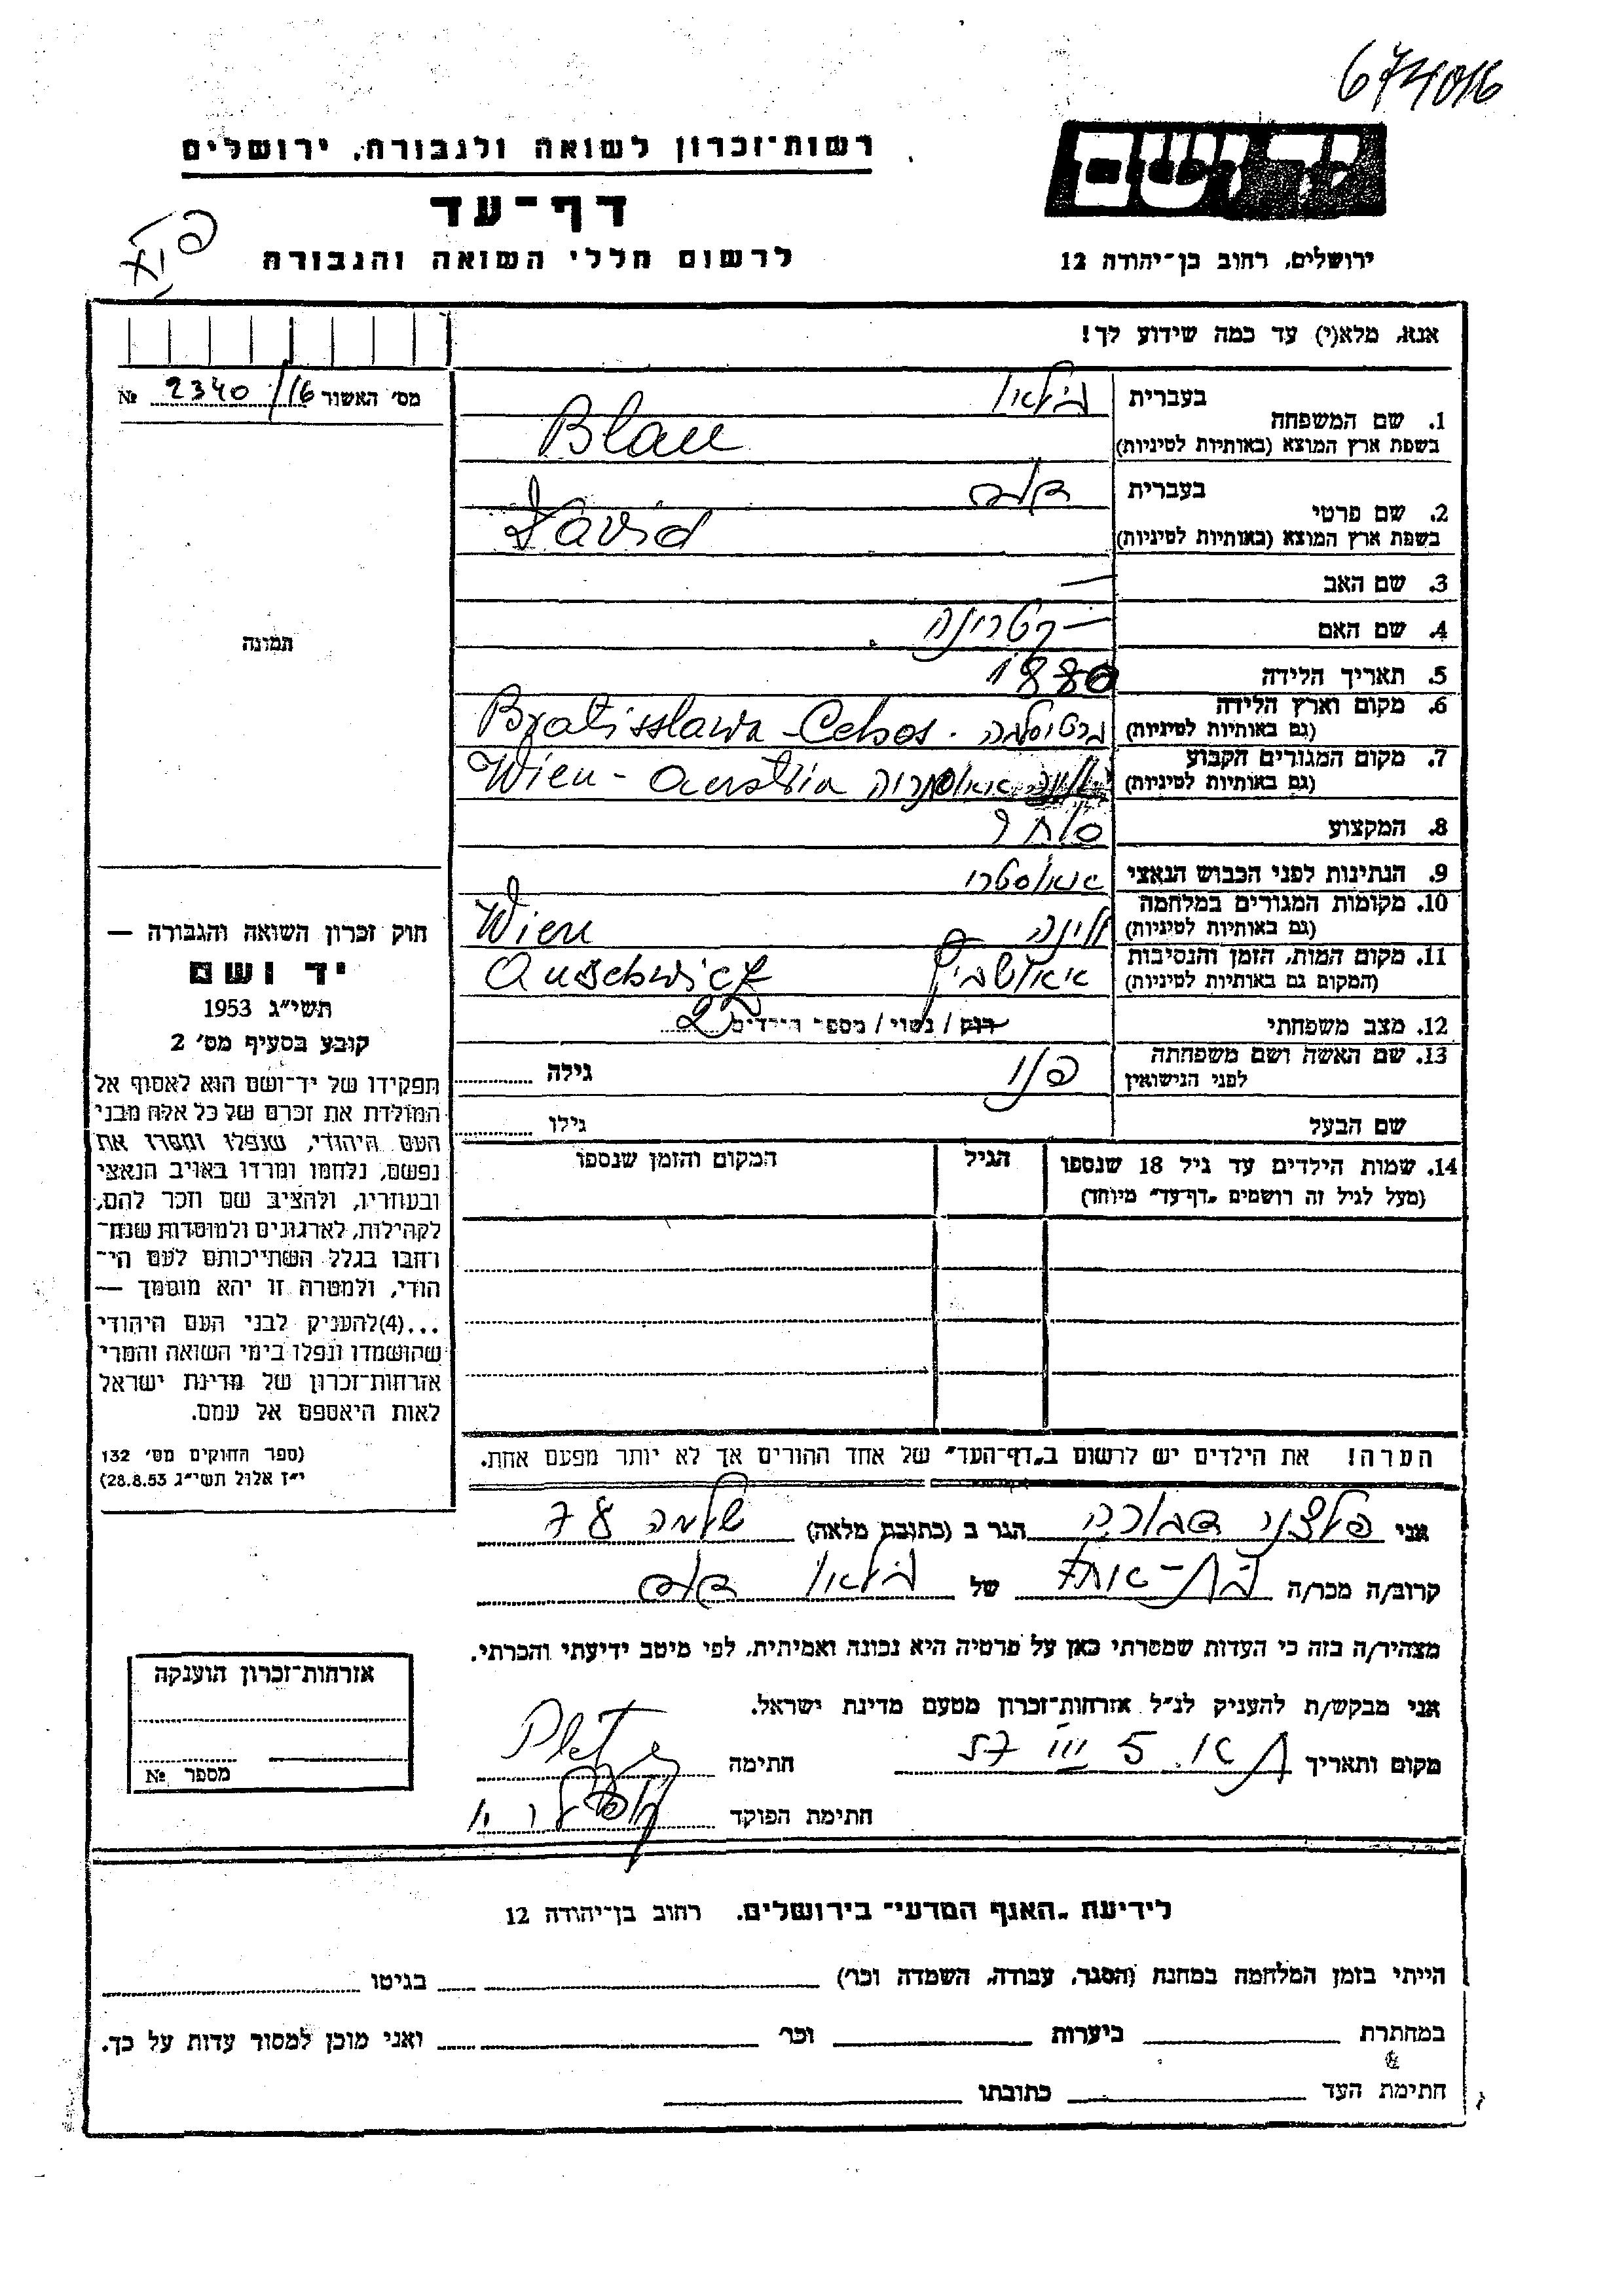 674016
רשות־זכרון לשואה ולגבורה, ירושלים
יד ושם
דף־עד
לרשום חללי השואה והגבורה
ירושלים, רחוב בן־יהודה 12
אנא, מלא(י) עד כמה שידוע לך!
מס' האשור 2340/16 №
בעברית בלאו
1. שם המשפחה
בשפת ארץ המוצא (באותיות לטיניות) Blau
בעברית דוד
2. שם פרטי
בשפת ארץ המוצא (באותיות לטיניות) David
3. שם האב —
4. שם האם — קטרינה
5. תאריך הלידה 1880
6. מקום וארץ הלידה
(גם באותיות לטיניות) ברטיסלבה Bratisslawa - Cehos.
7. מקום המגורים הקבוע
(גם באותיות לטיניות) וינה אוסטריה Wien - Austria
8. המקצוע סוחר
9. הנתינות לפני הכבוש הנאצי אוסטרי
10. מקומות המגורים במלחמה
(גם באותיות לטיניות) וינה Wien
11. מקום המות, הזמן והנסיבות
(המקום גם באותיות לטיניות) אושביץ Auschwicz
12. מצב משפחתי רוק / נשוי / מספר הילדים 2
13. שם האשה ושם משפחתה
לפני הנישואין גילה
שם הבעל גילו
14. שמות הילדים עד גיל 18 שנספו
(מעל לגיל זה רושמים „דף־עד" מיוחד)
הגיל
המקום והזמן שנספו
הערה! את הילדים יש לרשום ב„דף־העד" של אחד ההורים אך לא יותר מפעם אחת.
תמונה
חוק זכרון השואה והגבורה —
יד ושם
תשי"ג 1953
קובע בסעיף מס' 2
תפקידו של יד־ושם הוא לאסוף אל
המולדת את זכרם של כל אלה מבני
העם היהודי, שנפלו ומסרו את
נפשם, נלחמו ומרדו באויב הנאצי
ובעוזריו, ולהציב שם וזכר להם,
לקהילות, לארגונים ולמוסדות שנח־
רבו בגלל השתייכותם לעם הי־
הודי, ולמטרה זו יהא מוסמך —
...(4)להעניק לבני העם היהודי
שהושמדו ונפלו בימי השואה והמרי
אזרחות־זכרון של מדינת ישראל
לאות היאספם אל עמם.
(ספר החוקים מס' 132
י"ז אלול תשי"ג 28.8.53)
אני פלצני דבורה הגר ב (כתובת מלאה) שלמה 78
קרוב/ה מכר/ה בת-אחד של בלאו דוד
מצהיר/ה בזה כי העדות שמסרתי כאן על פרטיה היא נכונה ואמיתית, לפי מיטב ידיעתי והכרתי.
אני מבקש/ת להעניק לנ"ל אזרחות־זכרון מטעם מדינת ישראל.
מקום ותאריך ת"א. 5 III 57 חתימה
חתימת הפוקד
אזרחות־זכרון הוענקה
מספר №
לידיעת „האגף המדעי" בירושלים. רחוב בן־יהודה 12
הייתי בזמן המלחמה במחנה (הסגר, עבודה, השמדה וכו') בגיטו
במחתרת ביערות וכו' ואני מוכן למסור עדות על כך.
חתימת העד כתובתו